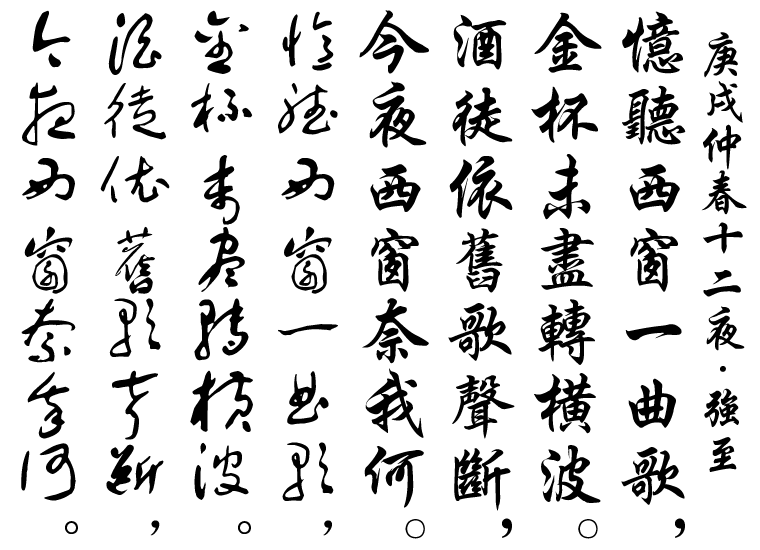 庚戌仲春十二夜·強至
憶聽西窗一曲歌，
金杯未盡轉橫波。
酒徒依舊歌聲斷，
今夜西窗奈我何。
憶聽西窗一曲歌，
金杯未盡轉橫波。
酒徒依舊歌聲斷，
今夜西窗奈我何。